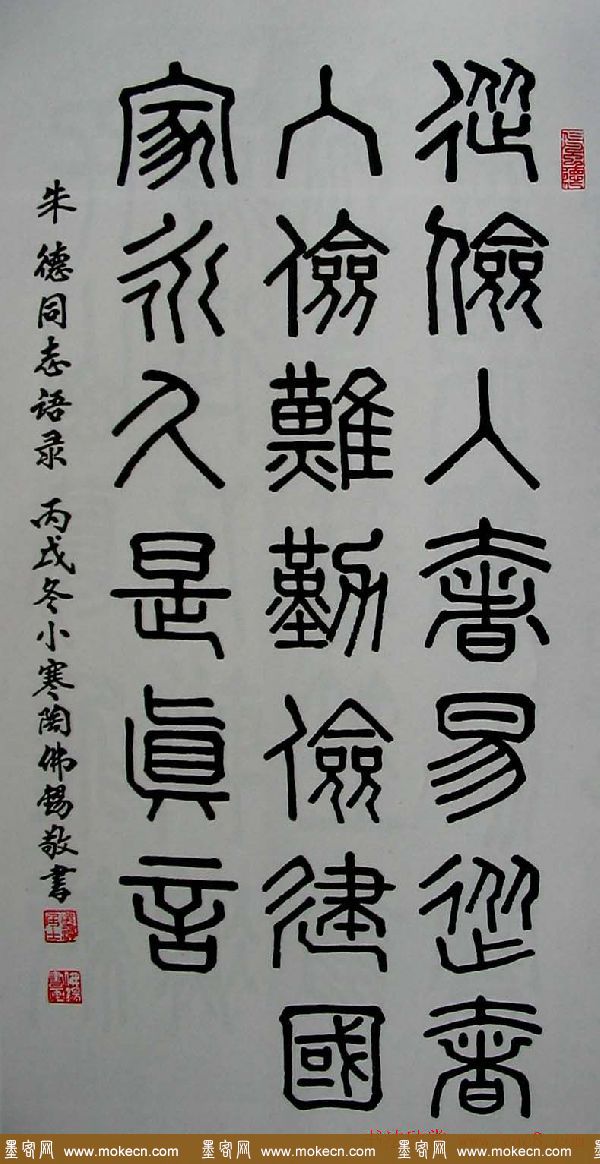 從儉入奢易從奢
入儉難勤儉建國
家永久是眞言
朱德同志语录 丙戌冬小寒陶佛錫敬書
墨客网 www.mokecn.com 墨客网 www.mokecn.com 墨客网 www.mokecn.com